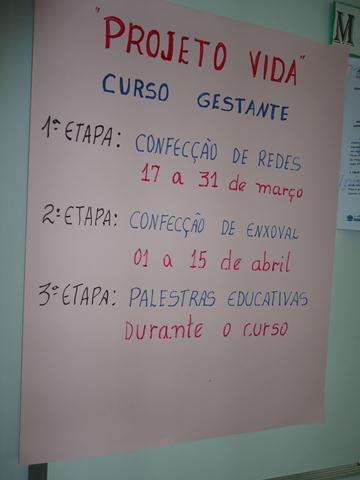 "PROJETO VIDA"
CURSO GESTANTE
1ª ETAPA: CONFECÇÃO DE REDES
17 a 31 de março
2ª ETAPA: CONFECÇÃO DE ENXOVAL
01 a 15 de abril
3ª ETAPA: PALESTRAS EDUCATIVAS
Durante o curso
M